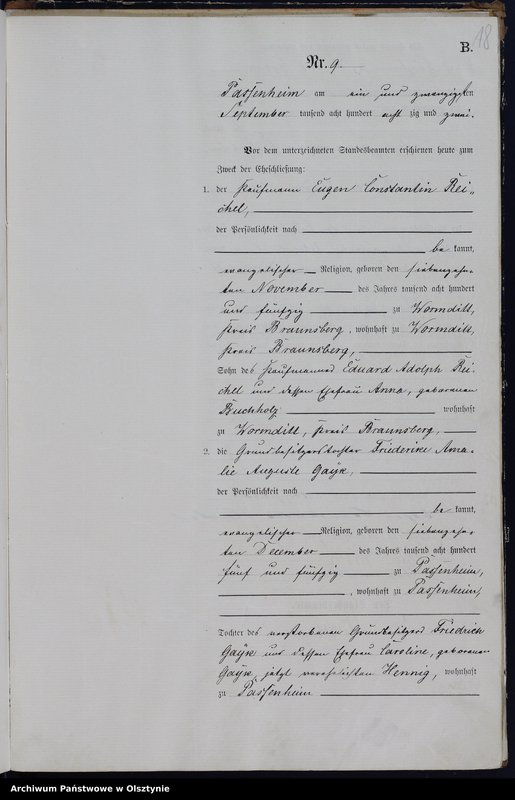 18
B.
Nr. 9.
Passenheim am ein und zwanzigsten
September tausend acht hundert acht zig und zwei.
Vor dem unterzeichneten Standesbeamten erschienen heute zum
Zweck der Eheschließung:
1. der Kaufmann Eugen Constantin Rei„
chel,
der Persönlichkeit nach
be kannt,
evangelischer Religion, geboren den siebenzehn-
ten November des Jahres tausend acht hundert
und fünfzig zu Wormditt,
Kreis Braunsberg, wohnhaft zu Wormditt,
Kreis Braunsberg,
Sohn des Kaufmannes Eduard Adolph Rei-
chel und dessen Ehefrau Anna, geborenen
Buchholz wohnhaft
zu Wormditt, Kreis Braunsberg,
2. die Grundbesitzerstochter Friederike Ama-
lie Auguste Gayk,
der Persönlichkeit nach
be kannt,
evangelischer Religion, geboren den siebenzehn-
ten December des Jahres tausend acht hundert
fünf und fünfzig zu Passenheim,
, wohnhaft zu Passenheim,
Tochter des verstorbenen Grundbesitzers Friedrich
Gayk und dessen Ehefrau Caroline, geborenen
Gayk, jetzt verehelichten Hennig, wohnhaft
zu Passenheim
Archiwum Państwowe w Olsztynie